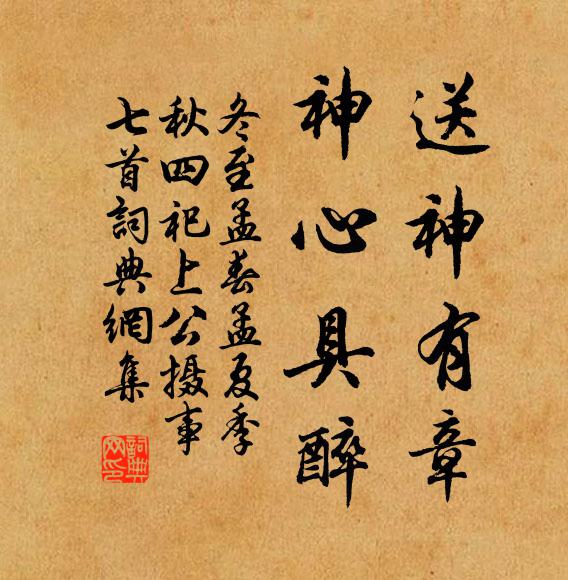 送神有章
神心具醉
冬至孟春孟夏季
秋四祀上公摄事
七首詞典網集
詞典网印